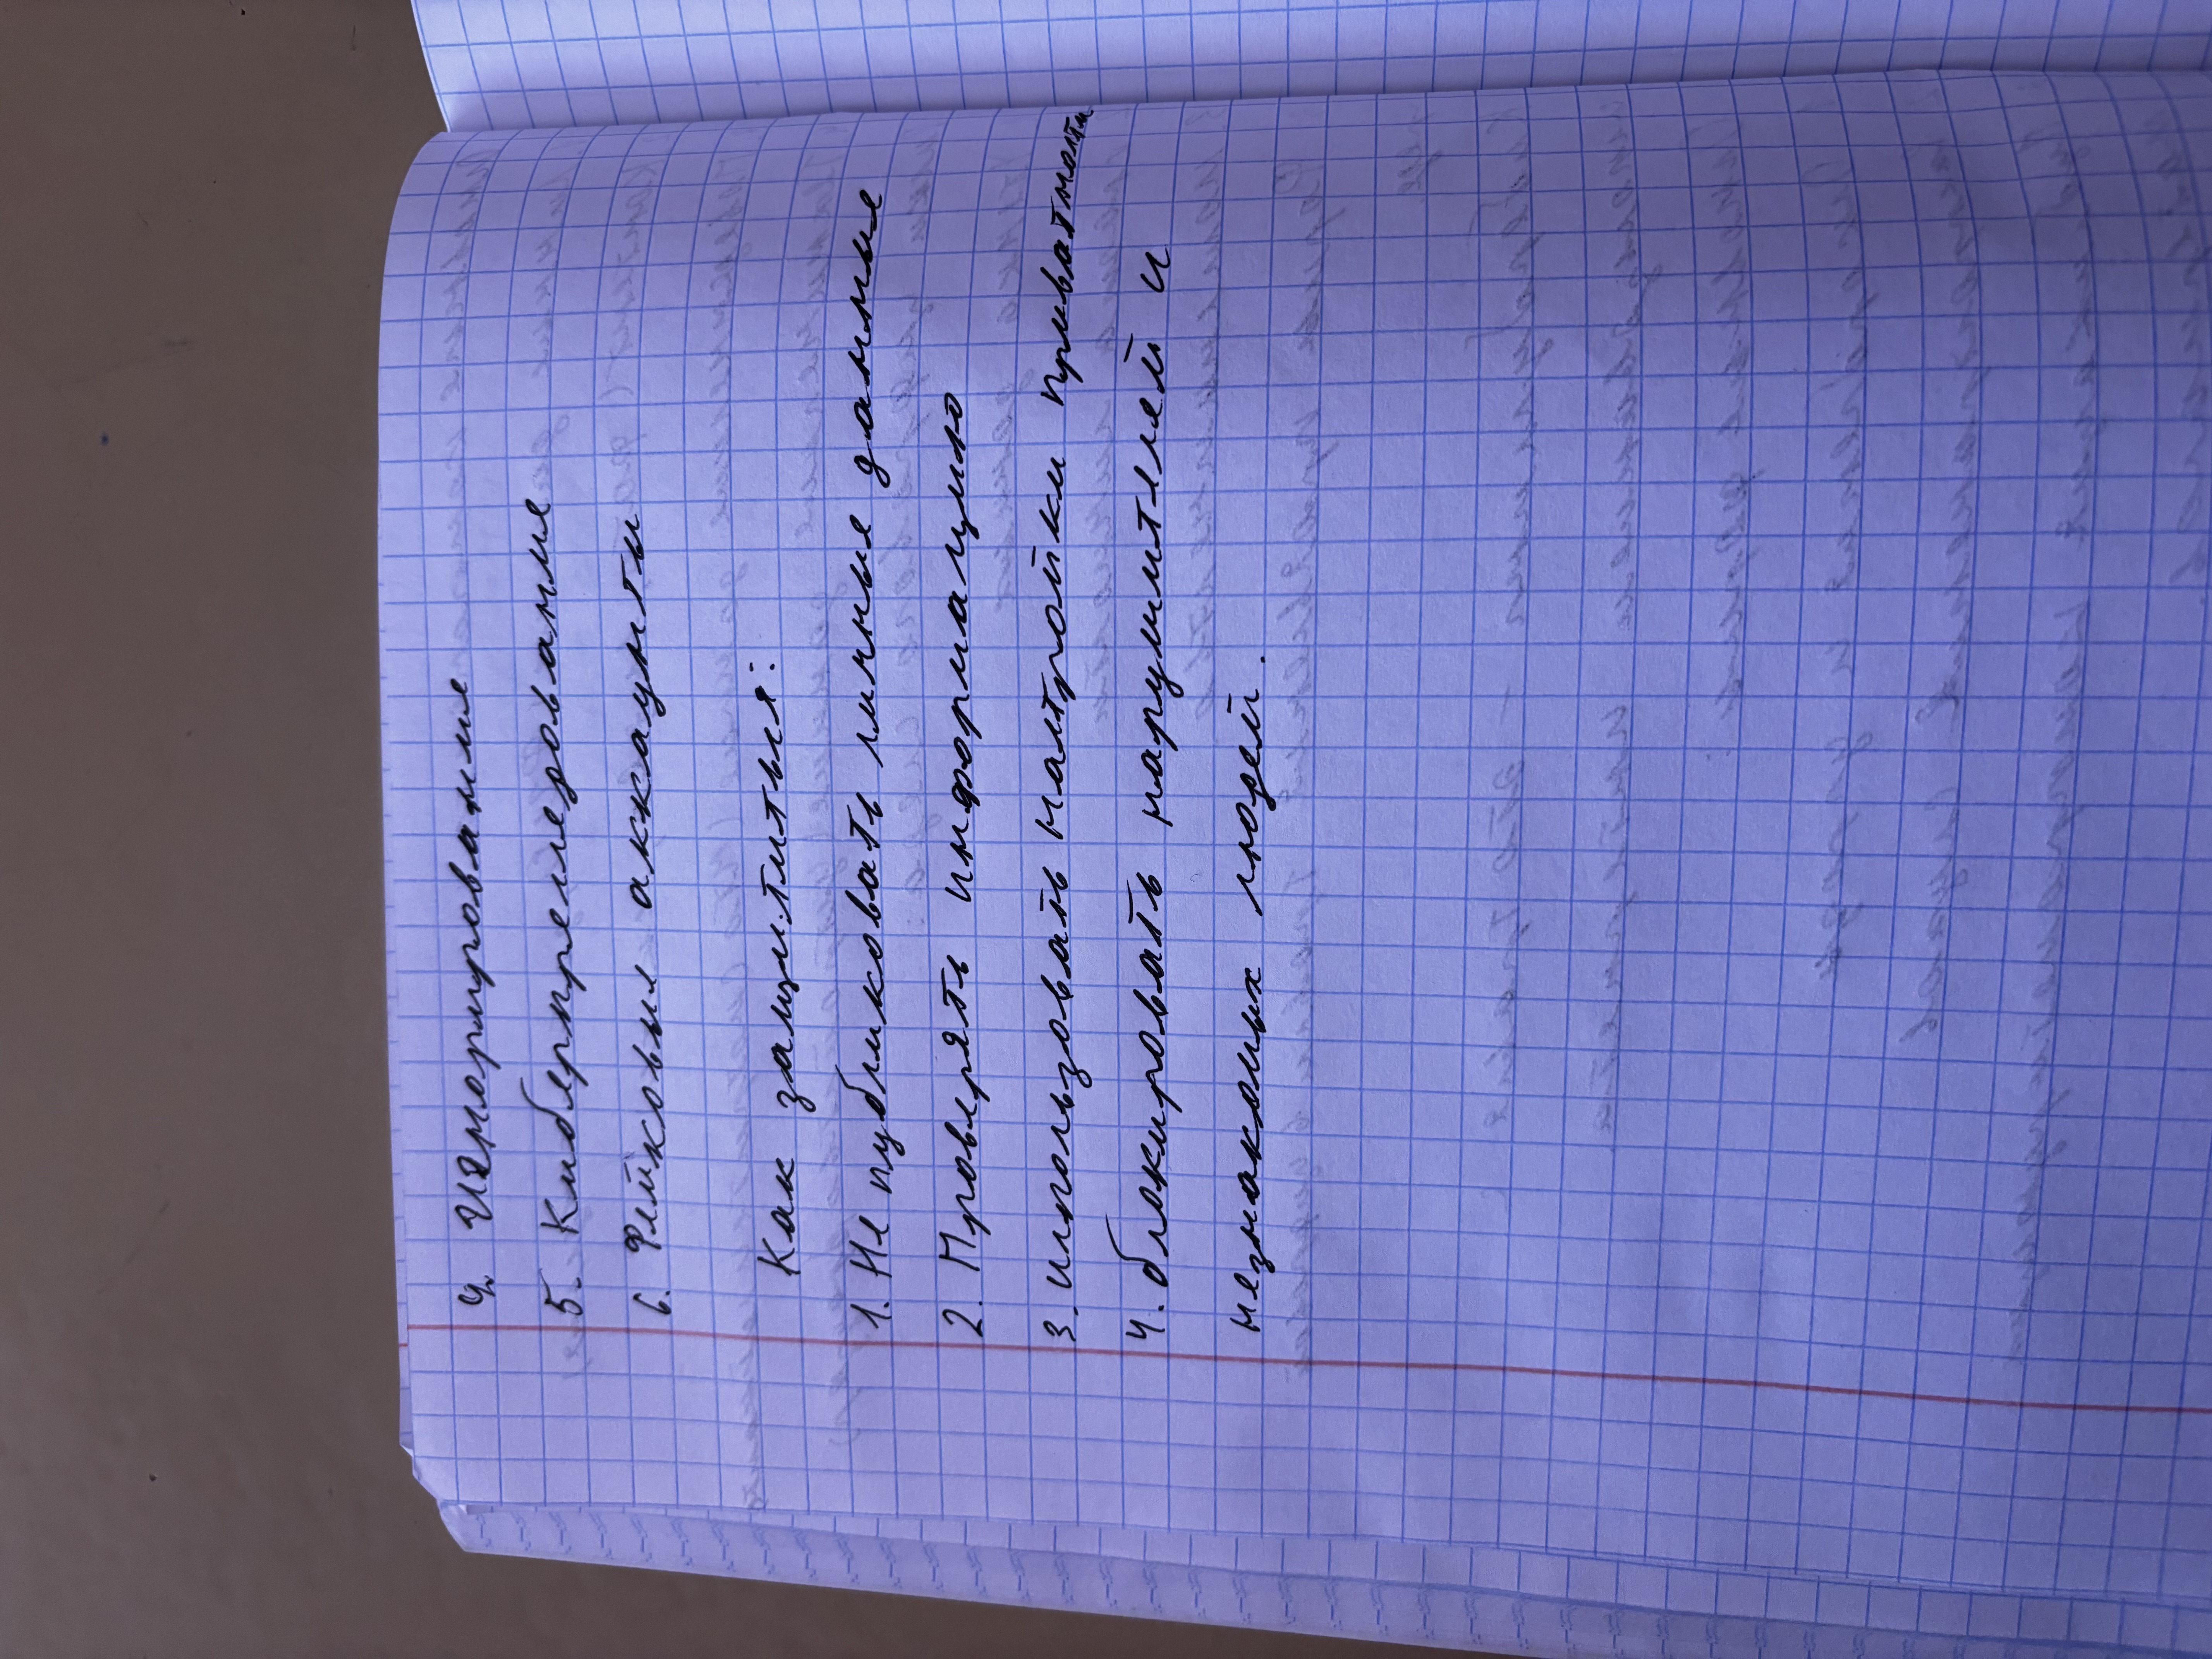 4. Игнорирование
5. Киберпреследование
6. Фейковые аккаунты
Как защититься:
1. Не публиковать личные данные
2. Проверять информацию
3. использовать настройки приватности
4. блокировать нарушителей и
незнакомых людей.